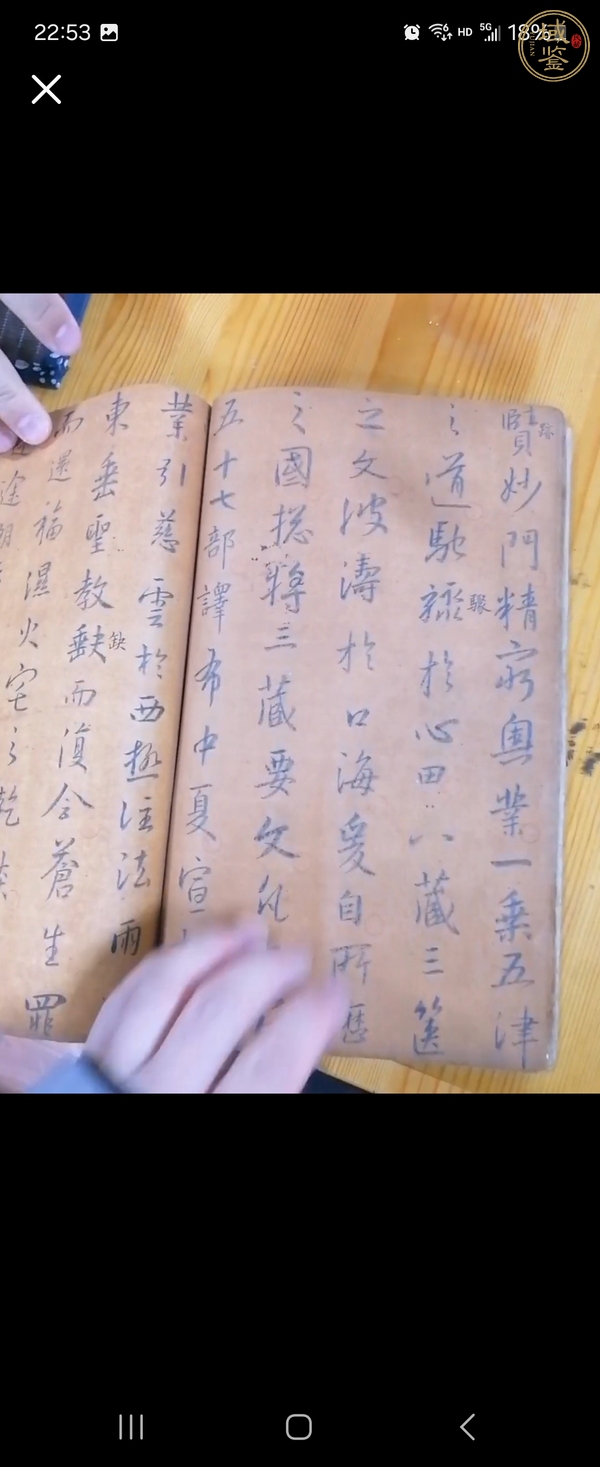 22:53 HD 5G 18%
域鉴
妙門精窮奧業一乘五津
之道馳驟於心田八藏三篋
驟
之文波濤於口海爰自所歷
之國總將三藏要文凡
五十七部譯布中夏宣
業引慈雲於西極注法雨
東垂聖教缺而復全蒼生罪
缺
而還福濕火宅之乾
途朗